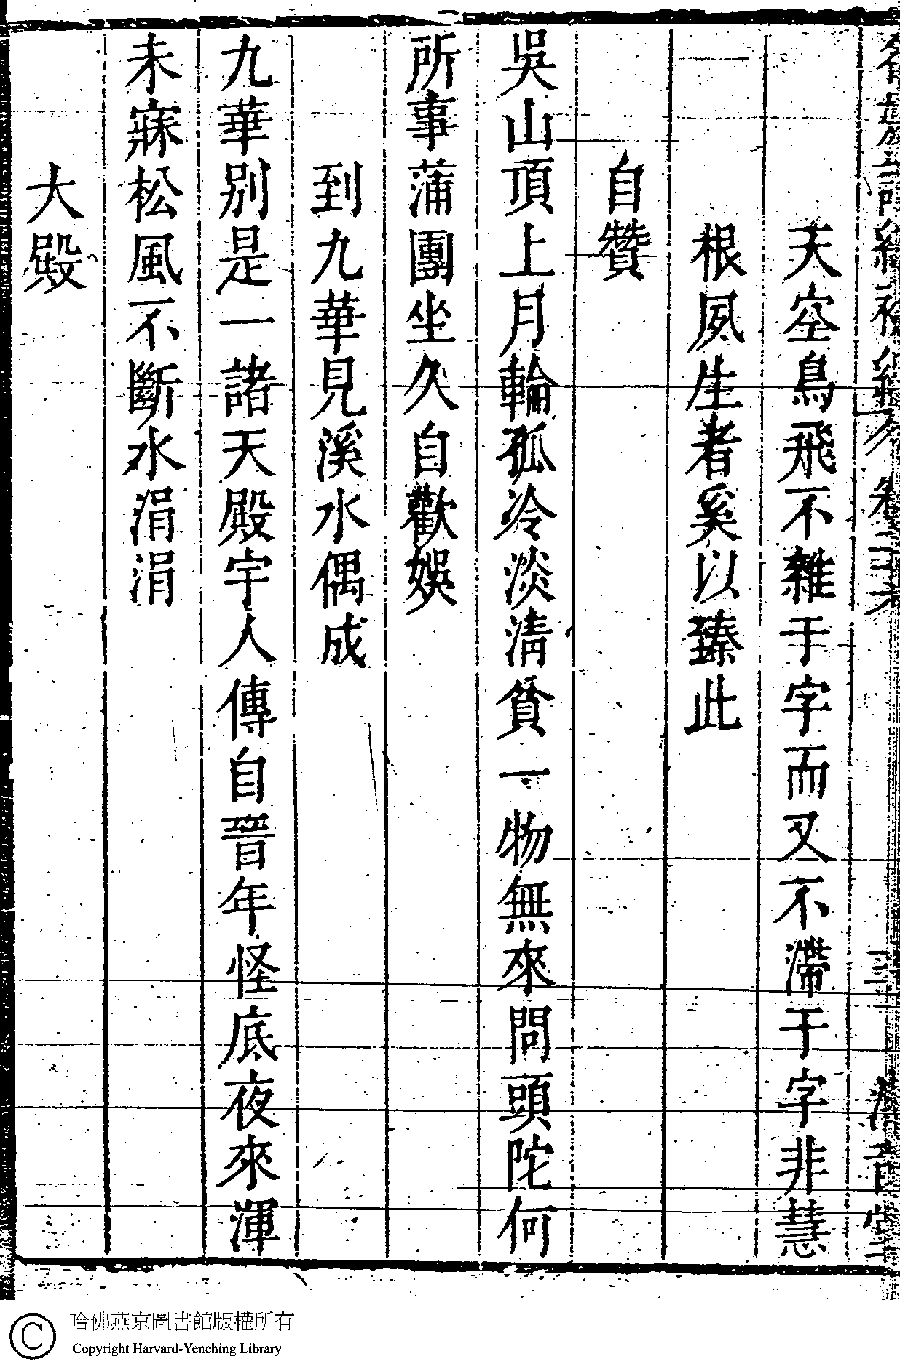 天空鳥飛不雜于字而又不滯于字非慧
根夙生者奚以臻此
自贊
吳山頂上月輪孤冷淡清貧一物無來問頭陀何
所事蒲團坐久自歡娛
到九華見溪水偶成
九華別是一諸天殿宇人傳自晉年怪底夜來渾
未寐松風不斷水涓涓
大殿
哈佛燕京圖書館版權所有
Copyright Harvard-Yenching Library